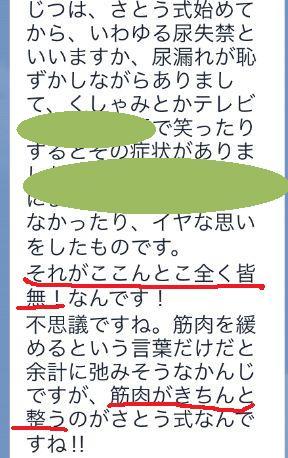 じつは、さとう式始めて
から、いわゆる尿失禁と
いいますか、尿漏れが恥
ずかしながらありまし
て、くしゃみとかテレビ
で笑ったり
するとその症状がありま
なかったり、イヤな思い
をしたものです。
それがここんとこ全く皆
無！なんです！
不思議ですね。筋肉を緩
めるという言葉だけだと
余計に弛みそうなかんじ
ですが、筋肉がきちんと
整うのがさとう式なんで
すね!!